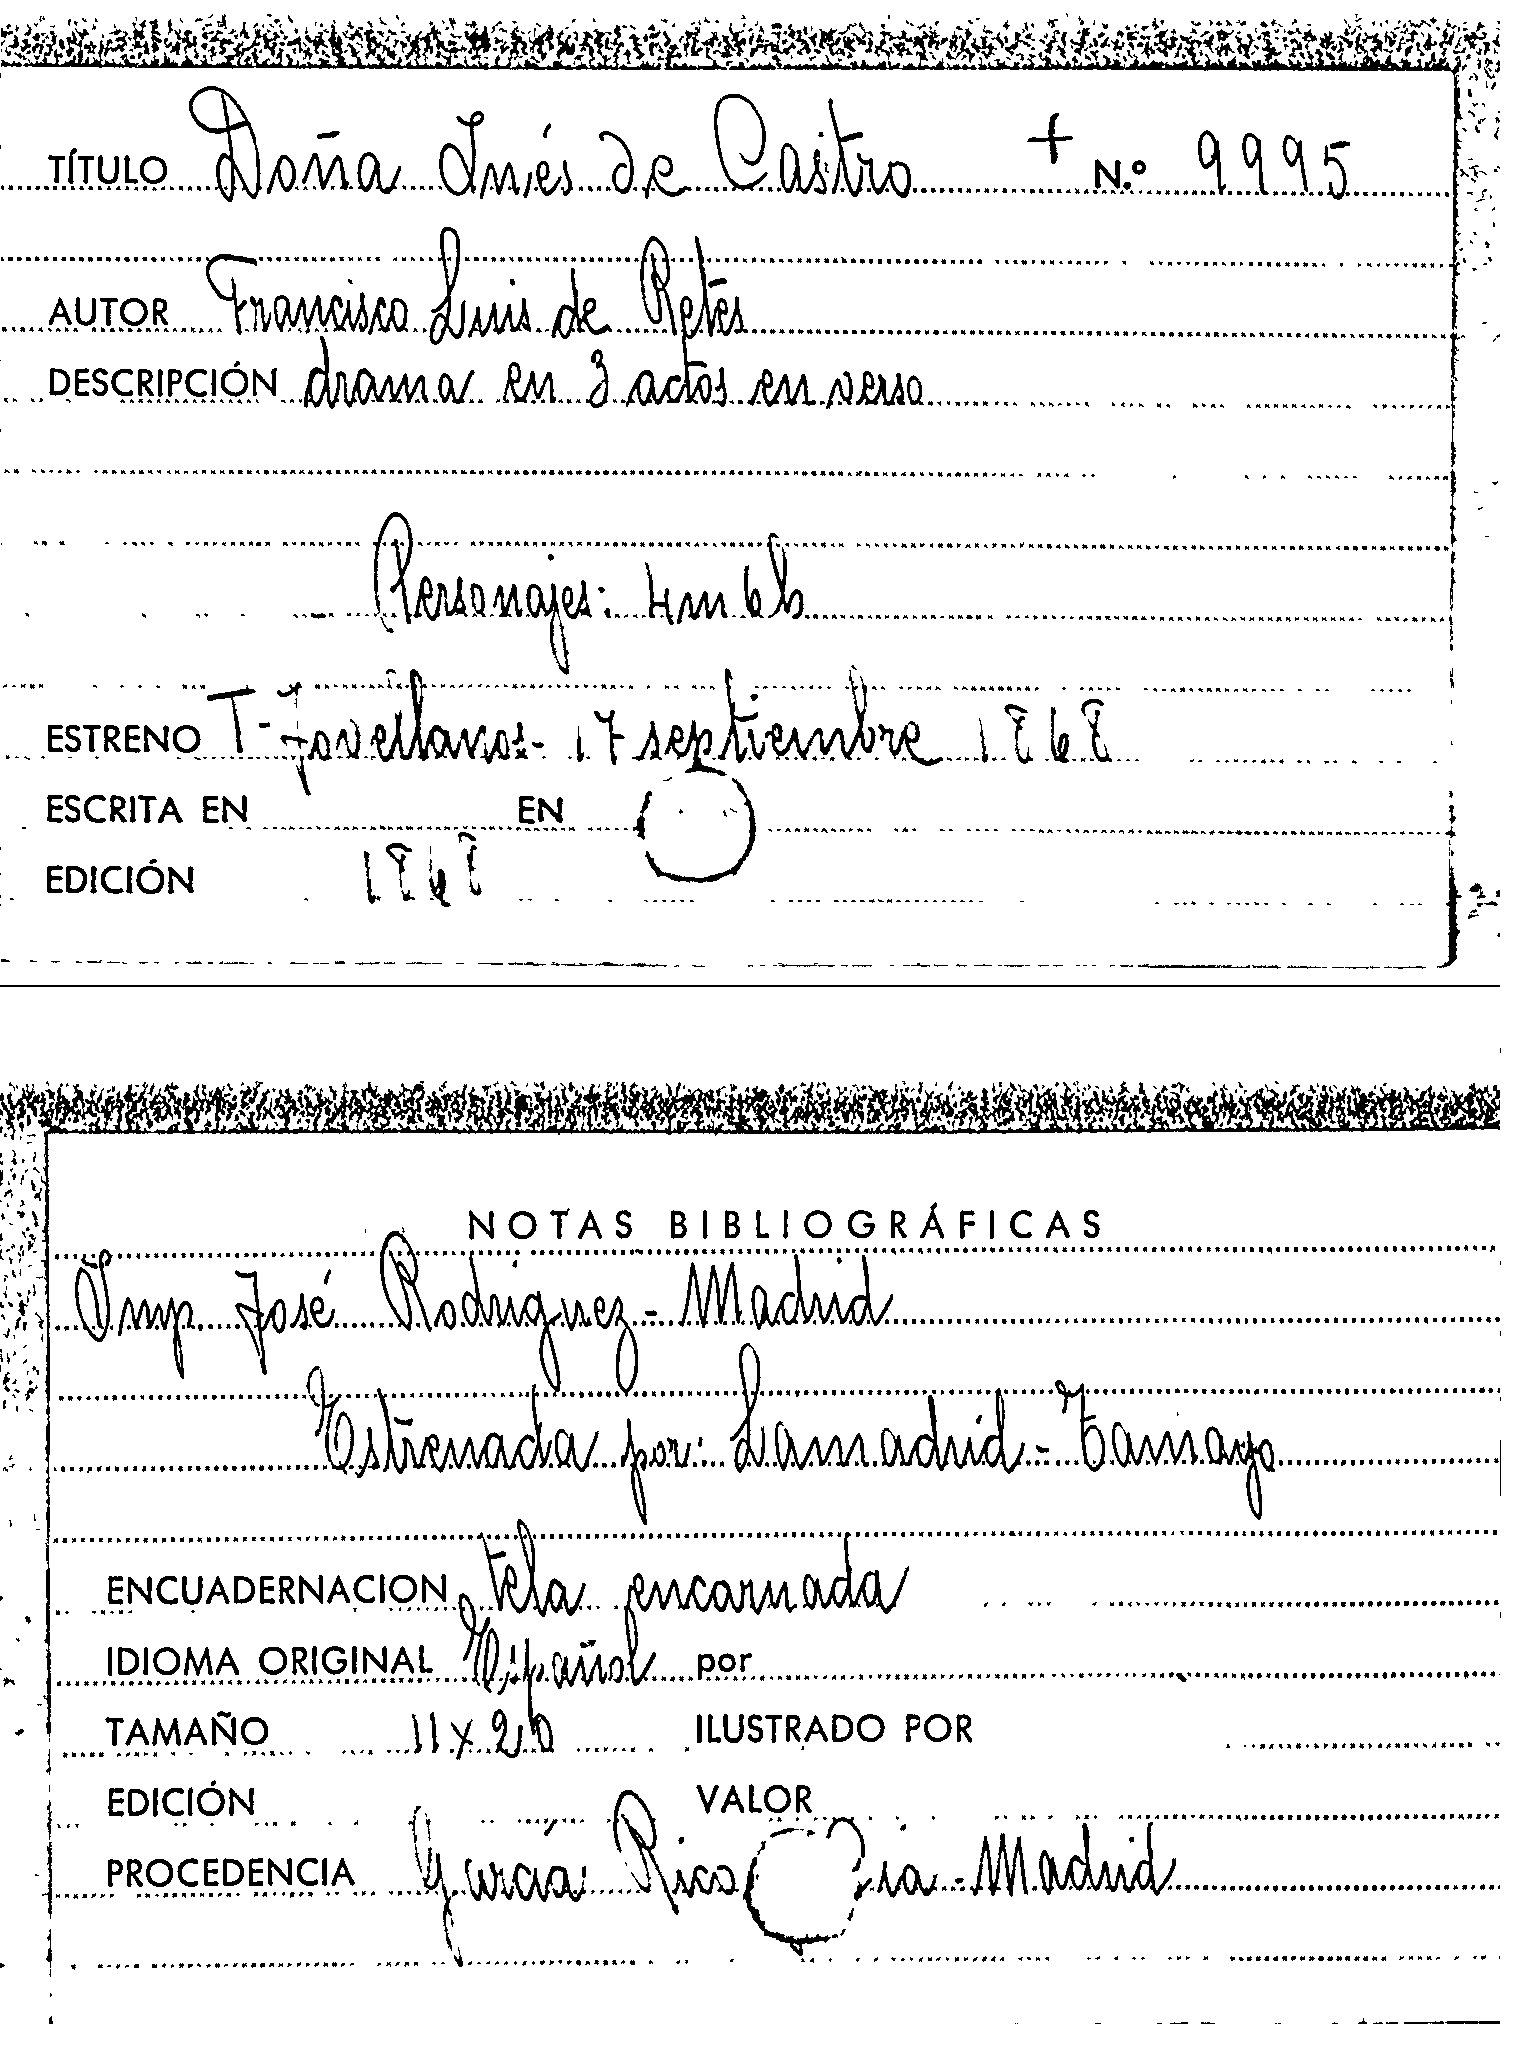 TÍTULO Doña Inés de Castro + N.º 9995
AUTOR Francisco Luis de Retes
DESCRIPCIÓN drama en 3 actos en verso
Personajes: 4m 6h
ESTRENO T- Jovellanos- 17 septiembre 1868
ESCRITA EN EN
EDICIÓN 1868
NOTAS BIBLIOGRÁFICAS
Imp. José Rodriguez - Madrid
Estrenada por: Lamadrid - Tamayo
ENCUADERNACION tela encarnada
IDIOMA ORIGINAL Español por
TAMAÑO 11 x 20 ILUSTRADO POR
EDICIÓN VALOR
PROCEDENCIA García Rico - Madrid